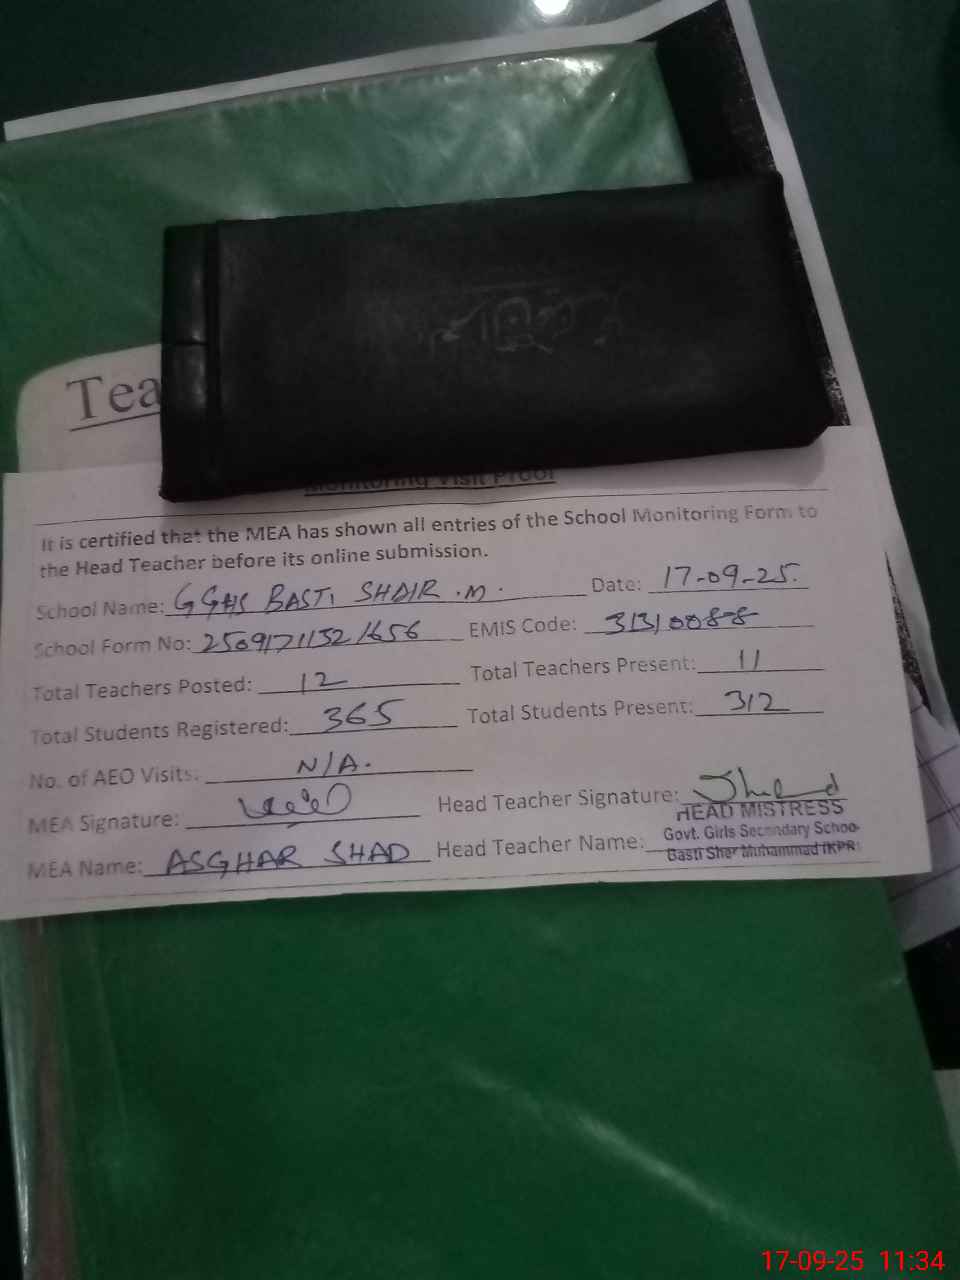 Tea
Monitoring Visit Proof
It is certified that the MEA has shown all entries of the School Monitoring Form to
the Head Teacher before its online submission.
School Name: GGHS BASTI SHAIR .M. Date: 17-09-25.
School Form No: EMIS Code: 31310088
Total Teachers Posted: 12 Total Teachers Present: 11
Total Students Registered: 365 Total Students Present: 312
No. of AEO Visits: N/A.
MEA Signature: Head Teacher Signature:
HEAD MISTRESS
MEA Name: ASGHAR SHAD Head Teacher Name: Govt. Girls Secondary Schoo
Basti Sher Muhammad (KPR)
17-09-25 11:34